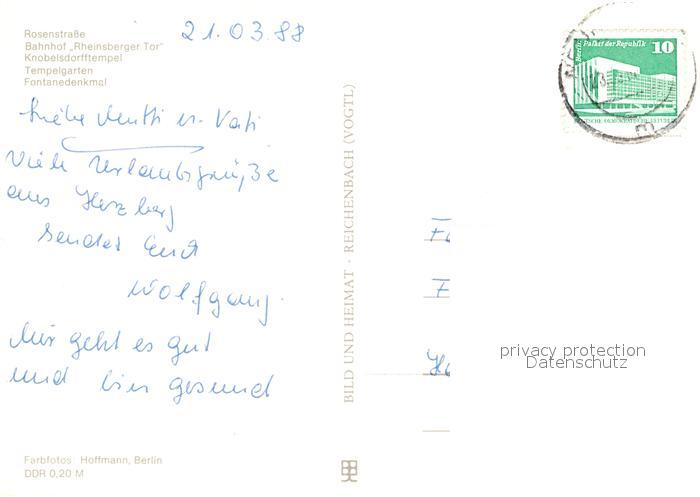 Rosenstraße
Bahnhof „Rheinsberger Tor"
Knobelsdorfftempel
Tempelgarten
Fontanedenkmal
21.03.88
Liebe Mutti u. Vati
Viele Urlaubsgrüße
aus Herzberg
sendet Euch
Wolfgang.
Mir geht es gut
und bin gesund
BILD UND HEIMAT · REICHENBACH (VOGTL)
Berlin, Palast der Republik 10
DEUTSCHE DEMOKRATISCHE REPUBLIK
privacy protection
Datenschutz
Farbfotos Hoffmann, Berlin
DDR 0,20 M